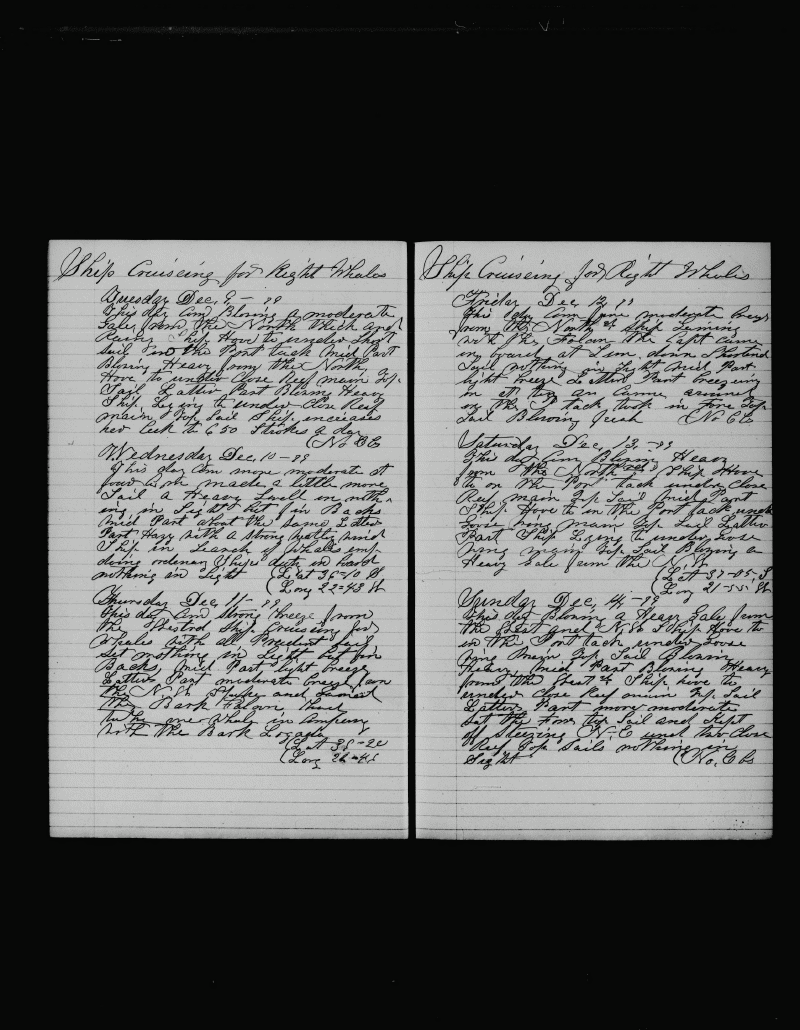 Ship Cruiseing for Right Whales
Tuesday Dec, 9 - 99
This day Com Bloing a moderate
Gale from the North thick and
Rainy Ship Hove to under Short
Sail on the Port tack Mid Part
Bloing Heavy from the North
Hove to under Close Reef main Top
Sail Latter Part Bloing Heavy
Ship Lying to under Close Reef
main Top Sail Ship increases
her Leek to 650 Strokes a day
(No Ob
Wednesday Dec, 10 - 99
This day Com more moderate at
four A.m made a little more
Sail a Heavy Swell on noth
ing in Sight but fin Backs
Mid Part about the same Latter
Part Hazy with a strong wind
Ship in Search of Whales emp
doing ordenary Ships duty on board
nothing in Sight (Lat 36-10 S
(Long 22-43 W
Thursday Dec, 11 - 99
this day Com Strong breeze from
the Ship Cruiseing for
Whales with all Prudent Sail
Set nothing in Sight but fin
Backs Mid Part light breeze
Latter Part moderate breeze from
the N. and
the Bark Falcon had
one Whale in Company
with the Bark
(Lat 35-20
(Long
Ship Cruiseing for Right Whales
Friday Dec 12, 99
this day Com fine moderate breeze
from the North Ship Gaming
with the Falcon the Capt came
on board at Sun down Shortend
Sail nothing in Sight Mid Part
light breeze Latter Part breezeing
on at
on the tack took in Fore Top
Sail Blowing fresh (No Ob
Saturday Dec, 13, - 99
this day Com Bloing Heavy
from the North Ship Hove
to on the Port tack under Close
Reef main Top Sail Mid Part
Ship Hove to on the Port tack under
Goose wing main Top Sail Latter
Part Ship Lying to under Goose
wing main Top Sail Bloing a
Heavy Gale from the N.W
(Lat 37-05, S
(Long 21-55 W
Sunday Dec, 14, - 99
this day Bloing a Heavy Gale from
the West and N, W Ship Hove to
on the Port tack under Goose
wing Main Top Sail Bloing
Heavy Mid Part Bloing Heavy
from the West Ship hove to
under close Reef main Top Sail
Latter Part more moderate
Set the Fore top Sail and Kept
off Steering N. E under two close
Reef Top Sails nothing in
Sight (No, Obs